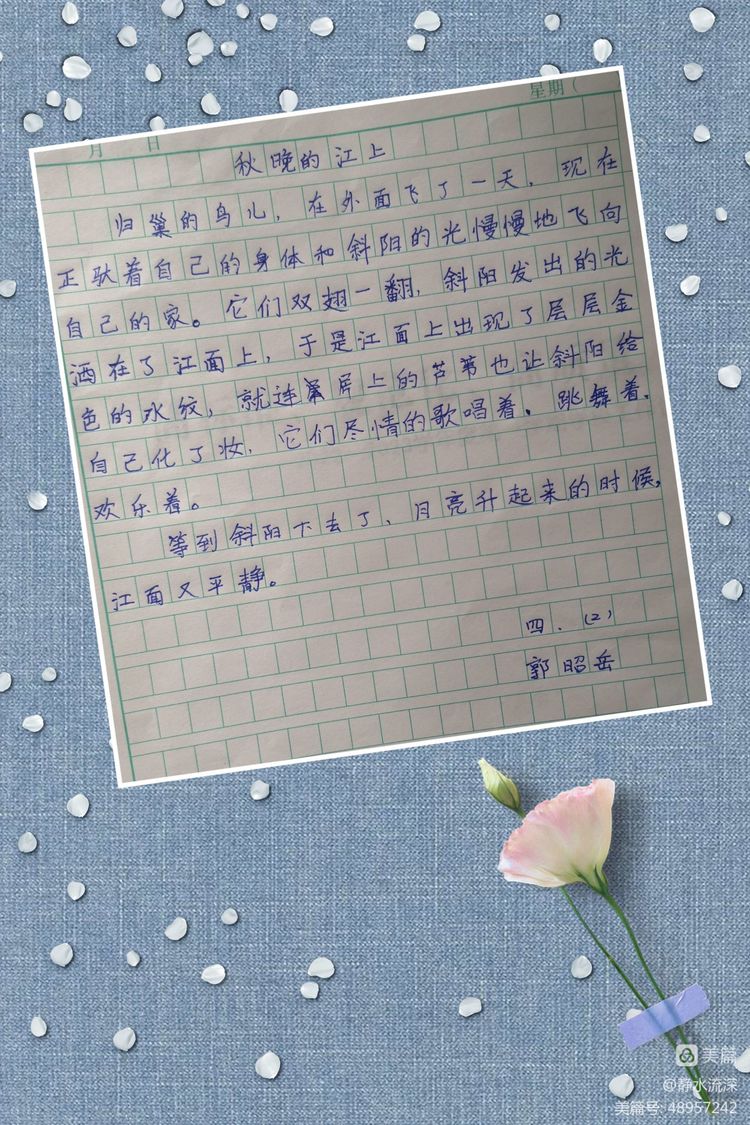 星期(
月 日
秋晚的江上
归巢的鸟儿，在外面飞了一天，现在
正驮着自己的身体和斜阳的光慢慢地飞向
自己的家。它们双翅一翻，斜阳发出的光
洒在了江面上，于是江面上出现了层层金
色的水纹，就连 岸上的芦苇也让斜阳给
自己化了妆，它们尽情的歌唱着、跳舞着、
欢乐着。
等到斜阳下去了、月亮升起来的时候，
江面又平静。
四.(2)
郭昭岳
美篇
@静水流深
美篇号: 48957242